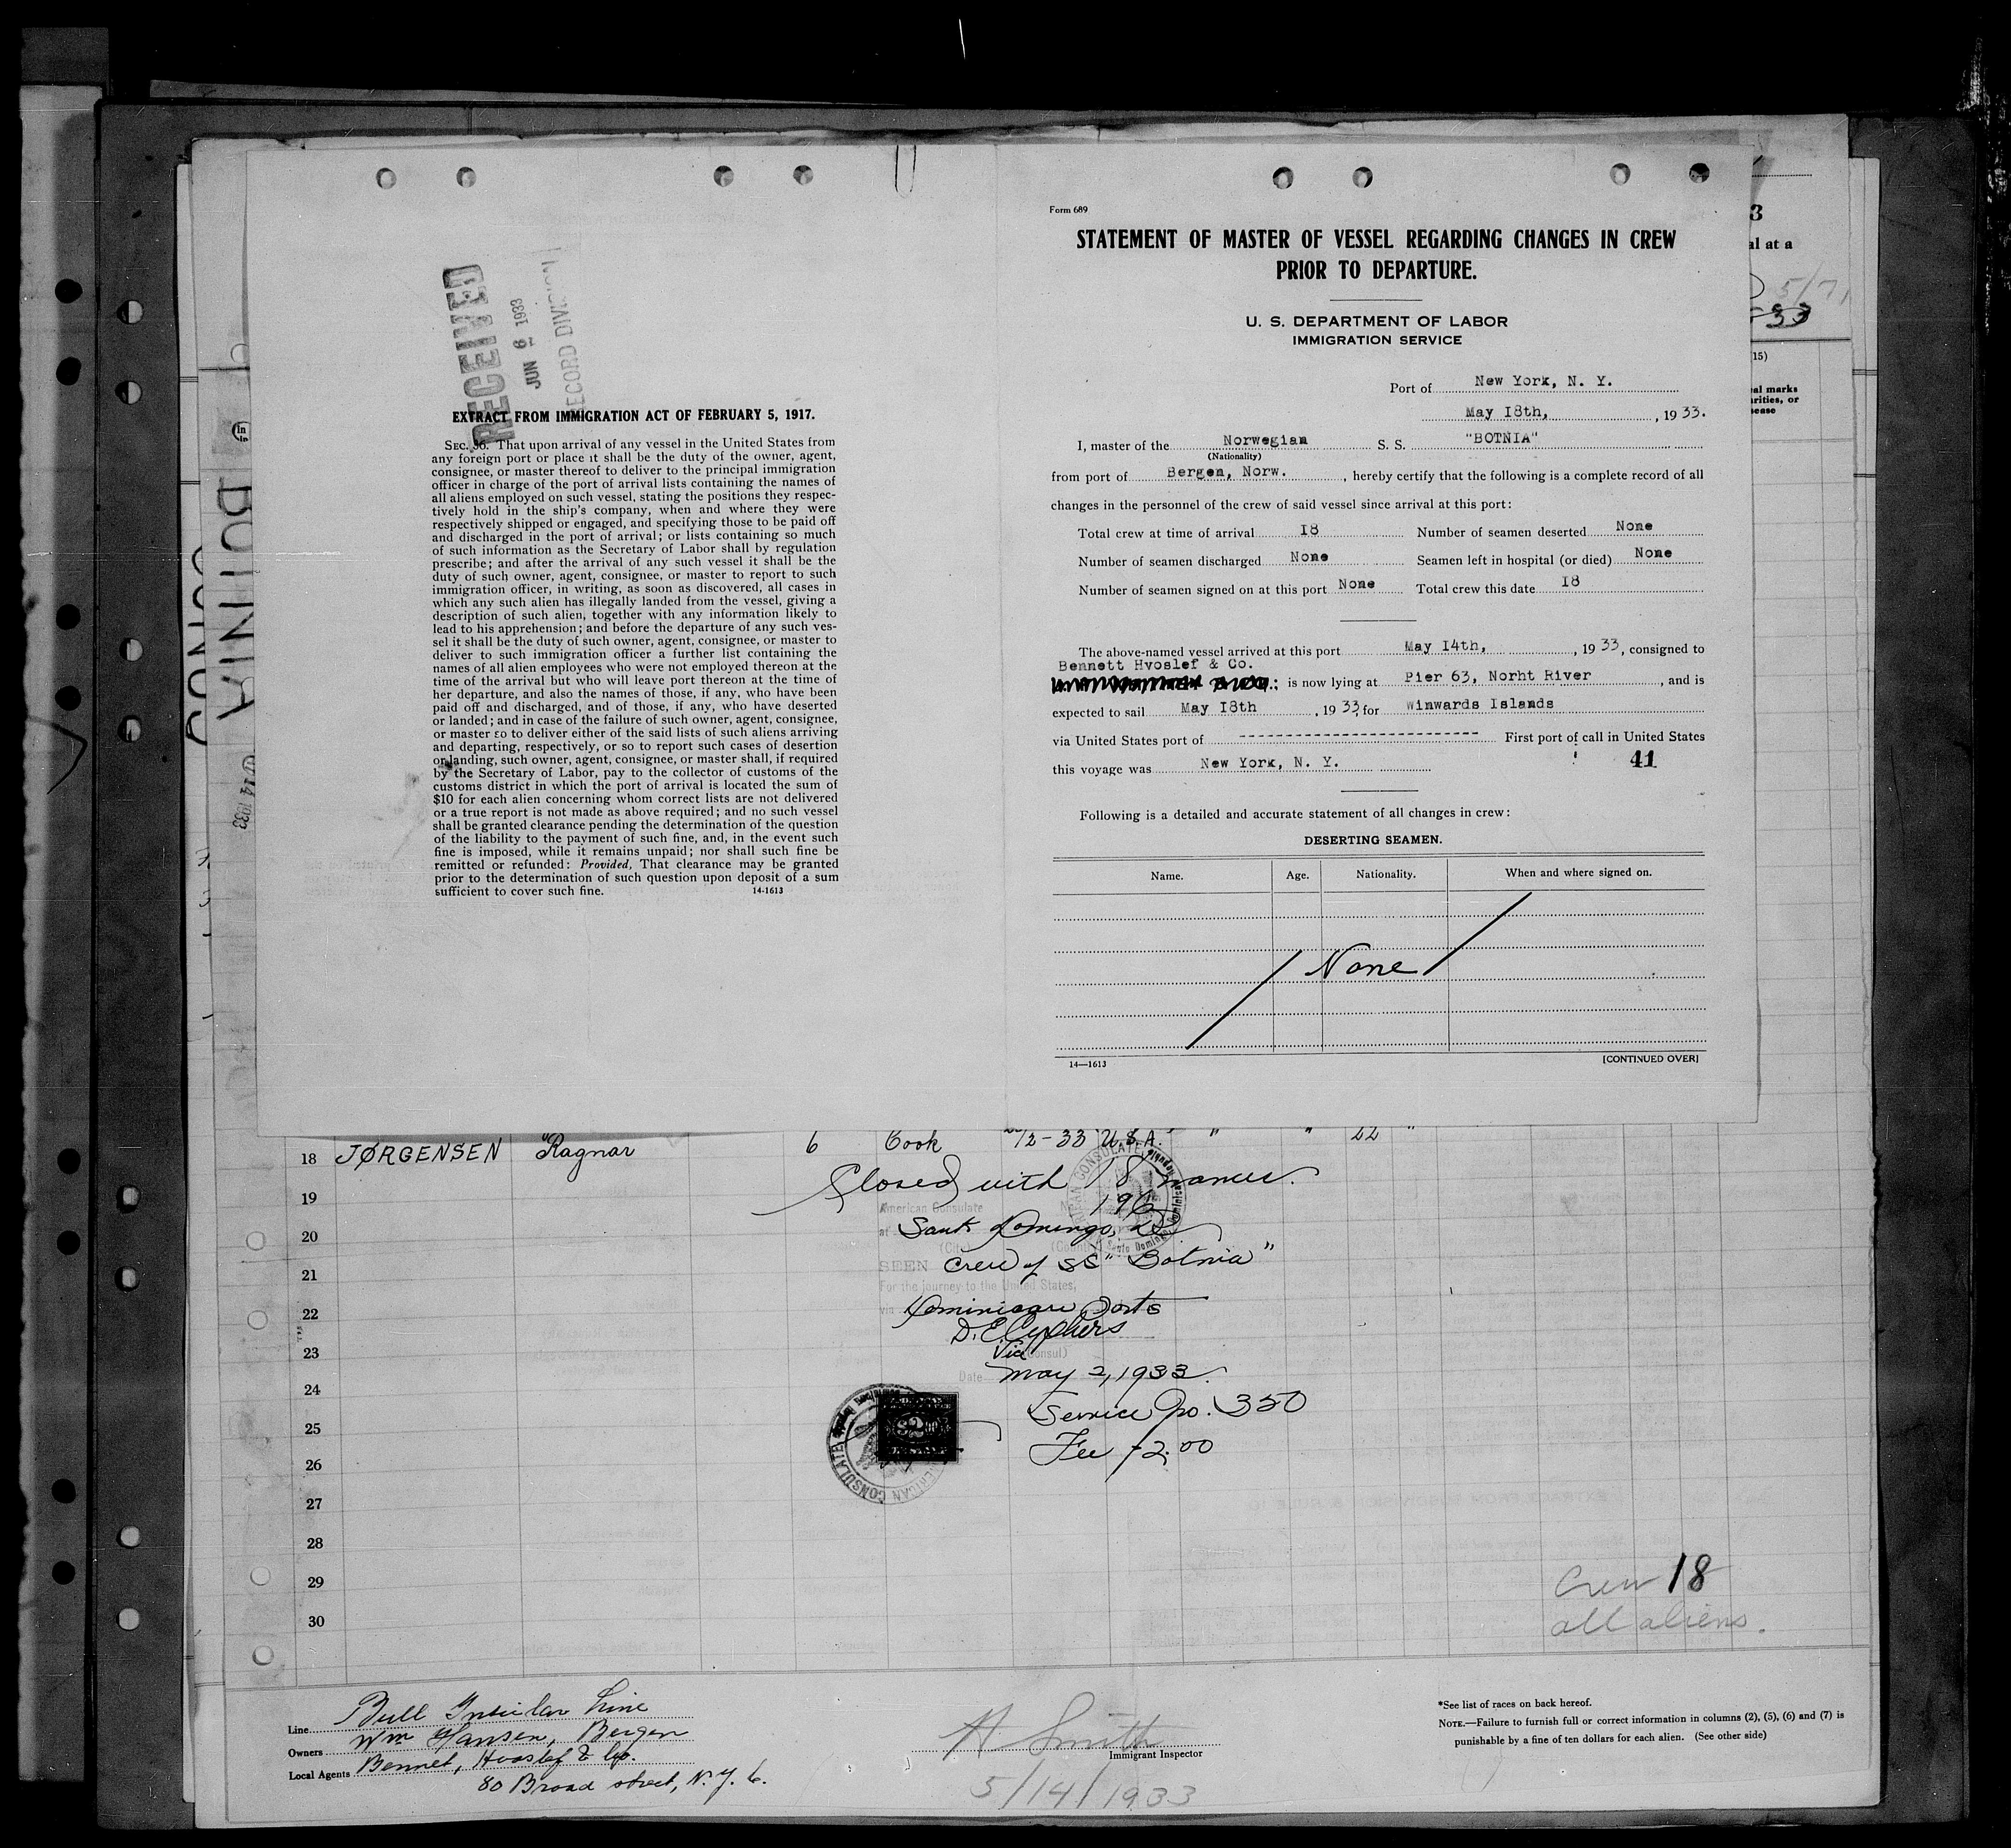 RECEIVED
JUN 6 1933
RECORD DIVISION
EXTRACT FROM IMMIGRATION ACT OF FEBRUARY 5, 1917.
SEC. 36. That upon arrival of any vessel in the United States from
any foreign port or place it shall be the duty of the owner, agent,
consignee, or master thereof to deliver to the principal immigration
officer in charge of the port of arrival lists containing the names of
all aliens employed on such vessel, stating the positions they respec-
tively hold in the ship's company, when and where they were
respectively shipped or engaged, and specifying those to be paid off
and discharged in the port of arrival; or lists containing so much
of such information as the Secretary of Labor shall by regulation
prescribe; and after the arrival of any such vessel it shall be the
duty of such owner, agent, consignee, or master to report to such
immigration officer, in writing, as soon as discovered, all cases in
which any such alien has illegally landed from the vessel, giving a
description of such alien, together with any information likely to
lead to his apprehension; and before the departure of any such ves-
sel it shall be the duty of such owner, agent, consignee, or master to
deliver to such immigration officer a further list containing the
names of all alien employees who were not employed thereon at the
time of the arrival but who will leave port thereon at the time of
her departure, and also the names of those, if any, who have been
paid off and discharged, and of those, if any, who have deserted
or landed; and in case of the failure of such owner, agent, consignee,
or master so to deliver either of the said lists of such aliens arriving
and departing, respectively, or so to report such cases of desertion
or landing, such owner, agent, consignee, or master shall, if required
by the Secretary of Labor, pay to the collector of customs of the
customs district in which the port of arrival is located the sum of
$10 for each alien concerning whom correct lists are not delivered
or a true report is not made as above required; and no such vessel
shall be granted clearance pending the determination of the question
of the liability to the payment of such fine, and, in the event such
fine is imposed, while it remains unpaid; nor shall such fine be
remitted or refunded: Provided, That clearance may be granted
prior to the determination of such question upon deposit of a sum
sufficient to cover such fine. 14-1613
Form 689
STATEMENT OF MASTER OF VESSEL REGARDING CHANGES IN CREW
PRIOR TO DEPARTURE.
U. S. DEPARTMENT OF LABOR
IMMIGRATION SERVICE
Port of New York, N. Y.
May 18th, , 1933.
I, master of the Norwegian S. S. "BOTNIA"
(Nationality)
from port of Bergen, Norw. , hereby certify that the following is a complete record of all
changes in the personnel of the crew of said vessel since arrival at this port:
Total crew at time of arrival 18 Number of seamen deserted None
Number of seamen discharged None Seamen left in hospital (or died) None
Number of seamen signed on at this port None Total crew this date 18
The above-named vessel arrived at this port May 14th, , 1933, consigned to
Bennett Hvoslef & Co.
is now lying at Pier 63, Norht River , and is
expected to sail May 18th , 1933, for Winwards Islands
via United States port of First port of call in United States
this voyage was New York, N. Y. 41
Following is a detailed and accurate statement of all changes in crew:
DESERTING SEAMEN.
Name. Age. Nationality. When and where signed on.
None
14—1613 [CONTINUED OVER]
3
al at a
5/71
33
(15)
al marks
rities, or
sease
BOTNIA
14 1933
18 JØRGENSEN Ragnar 6 Cook /2-33 U.S.A. " " 22 "
Closed with 18 names.
19
196
American Consulate
20
at Santo Domingo, D.R.
(City) (Country)
21
SEEN crew of SS "Botnia"
For the journey to the United States,
22
via Dominican Ports
D. E. Cyphers
23
Vice (Consul)
Date May 2, 1933.
24
Service No. 350
25
$2.00
AMERICAN CONSULATE
Fee $2.00
26
27
28
29
30
Crew 18
all aliens.
Line Bull Insular Line
Owners Wm Hansen, Bergen
Local Agents Bennet, Hvoslef & Co.
80 Broad street, N.Y.C.
A. Smith
Immigrant Inspector
5/14/1933
*See list of races on back hereof.
NOTE.—Failure to furnish full or correct information in columns (2), (5), (6) and (7) is
punishable by a fine of ten dollars for each alien. (See other side)